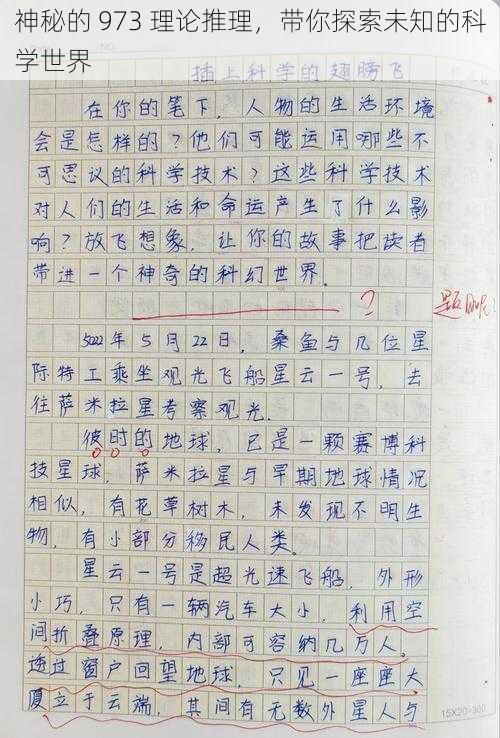 神秘的 973 理论推理，带你探索未知的科
学世界
插上科学的翅膀飞
在你的笔下，人物的生活环境
会是怎样的？他们可能运用哪些不
可思议的科学技术？这些科学技术
对人们的生活和命运产生了什么影
响？放飞想象，让你的故事把读者
带进一个神奇的科幻世界。
？ 题呢？
5022年5月22日，桑鱼与几位星
际特工乘坐观光飞船星云一号，去
往萨米拉星考察观光.
彼时的地球，已是一颗赛博科
技星球，萨米拉星与早期地球情况
相似，有花草树木，未发现不明生
物，有小部分移民人类。
星云一号是超光速飞船，外形
小巧，只有一辆汽车大小，利用空
间折叠原理，内部可容纳几万人。
透过窗户回望地球，只见一座座大
厦立于云端，其间有无数外星人与
15X20=300